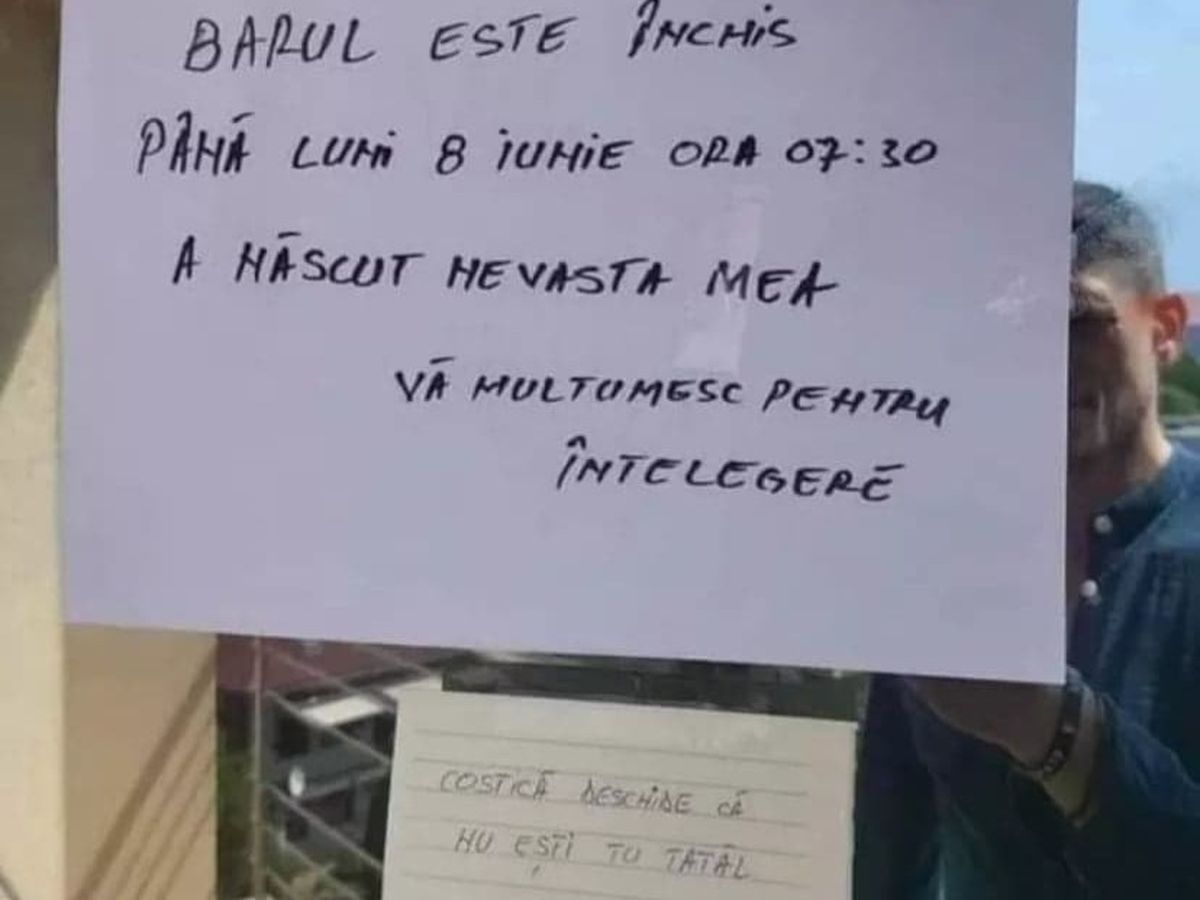 BARUL ESTE ÎNCHIS
PÂNĂ LUNI 8 IUNIE ORA 07:30
A NĂSCUT NEVASTA MEA
VĂ MULTUMESC PENTRU
ÎNTELEGERE
COSTICĂ DESCHIDE CĂ
NU EȘTI TU TATĂL